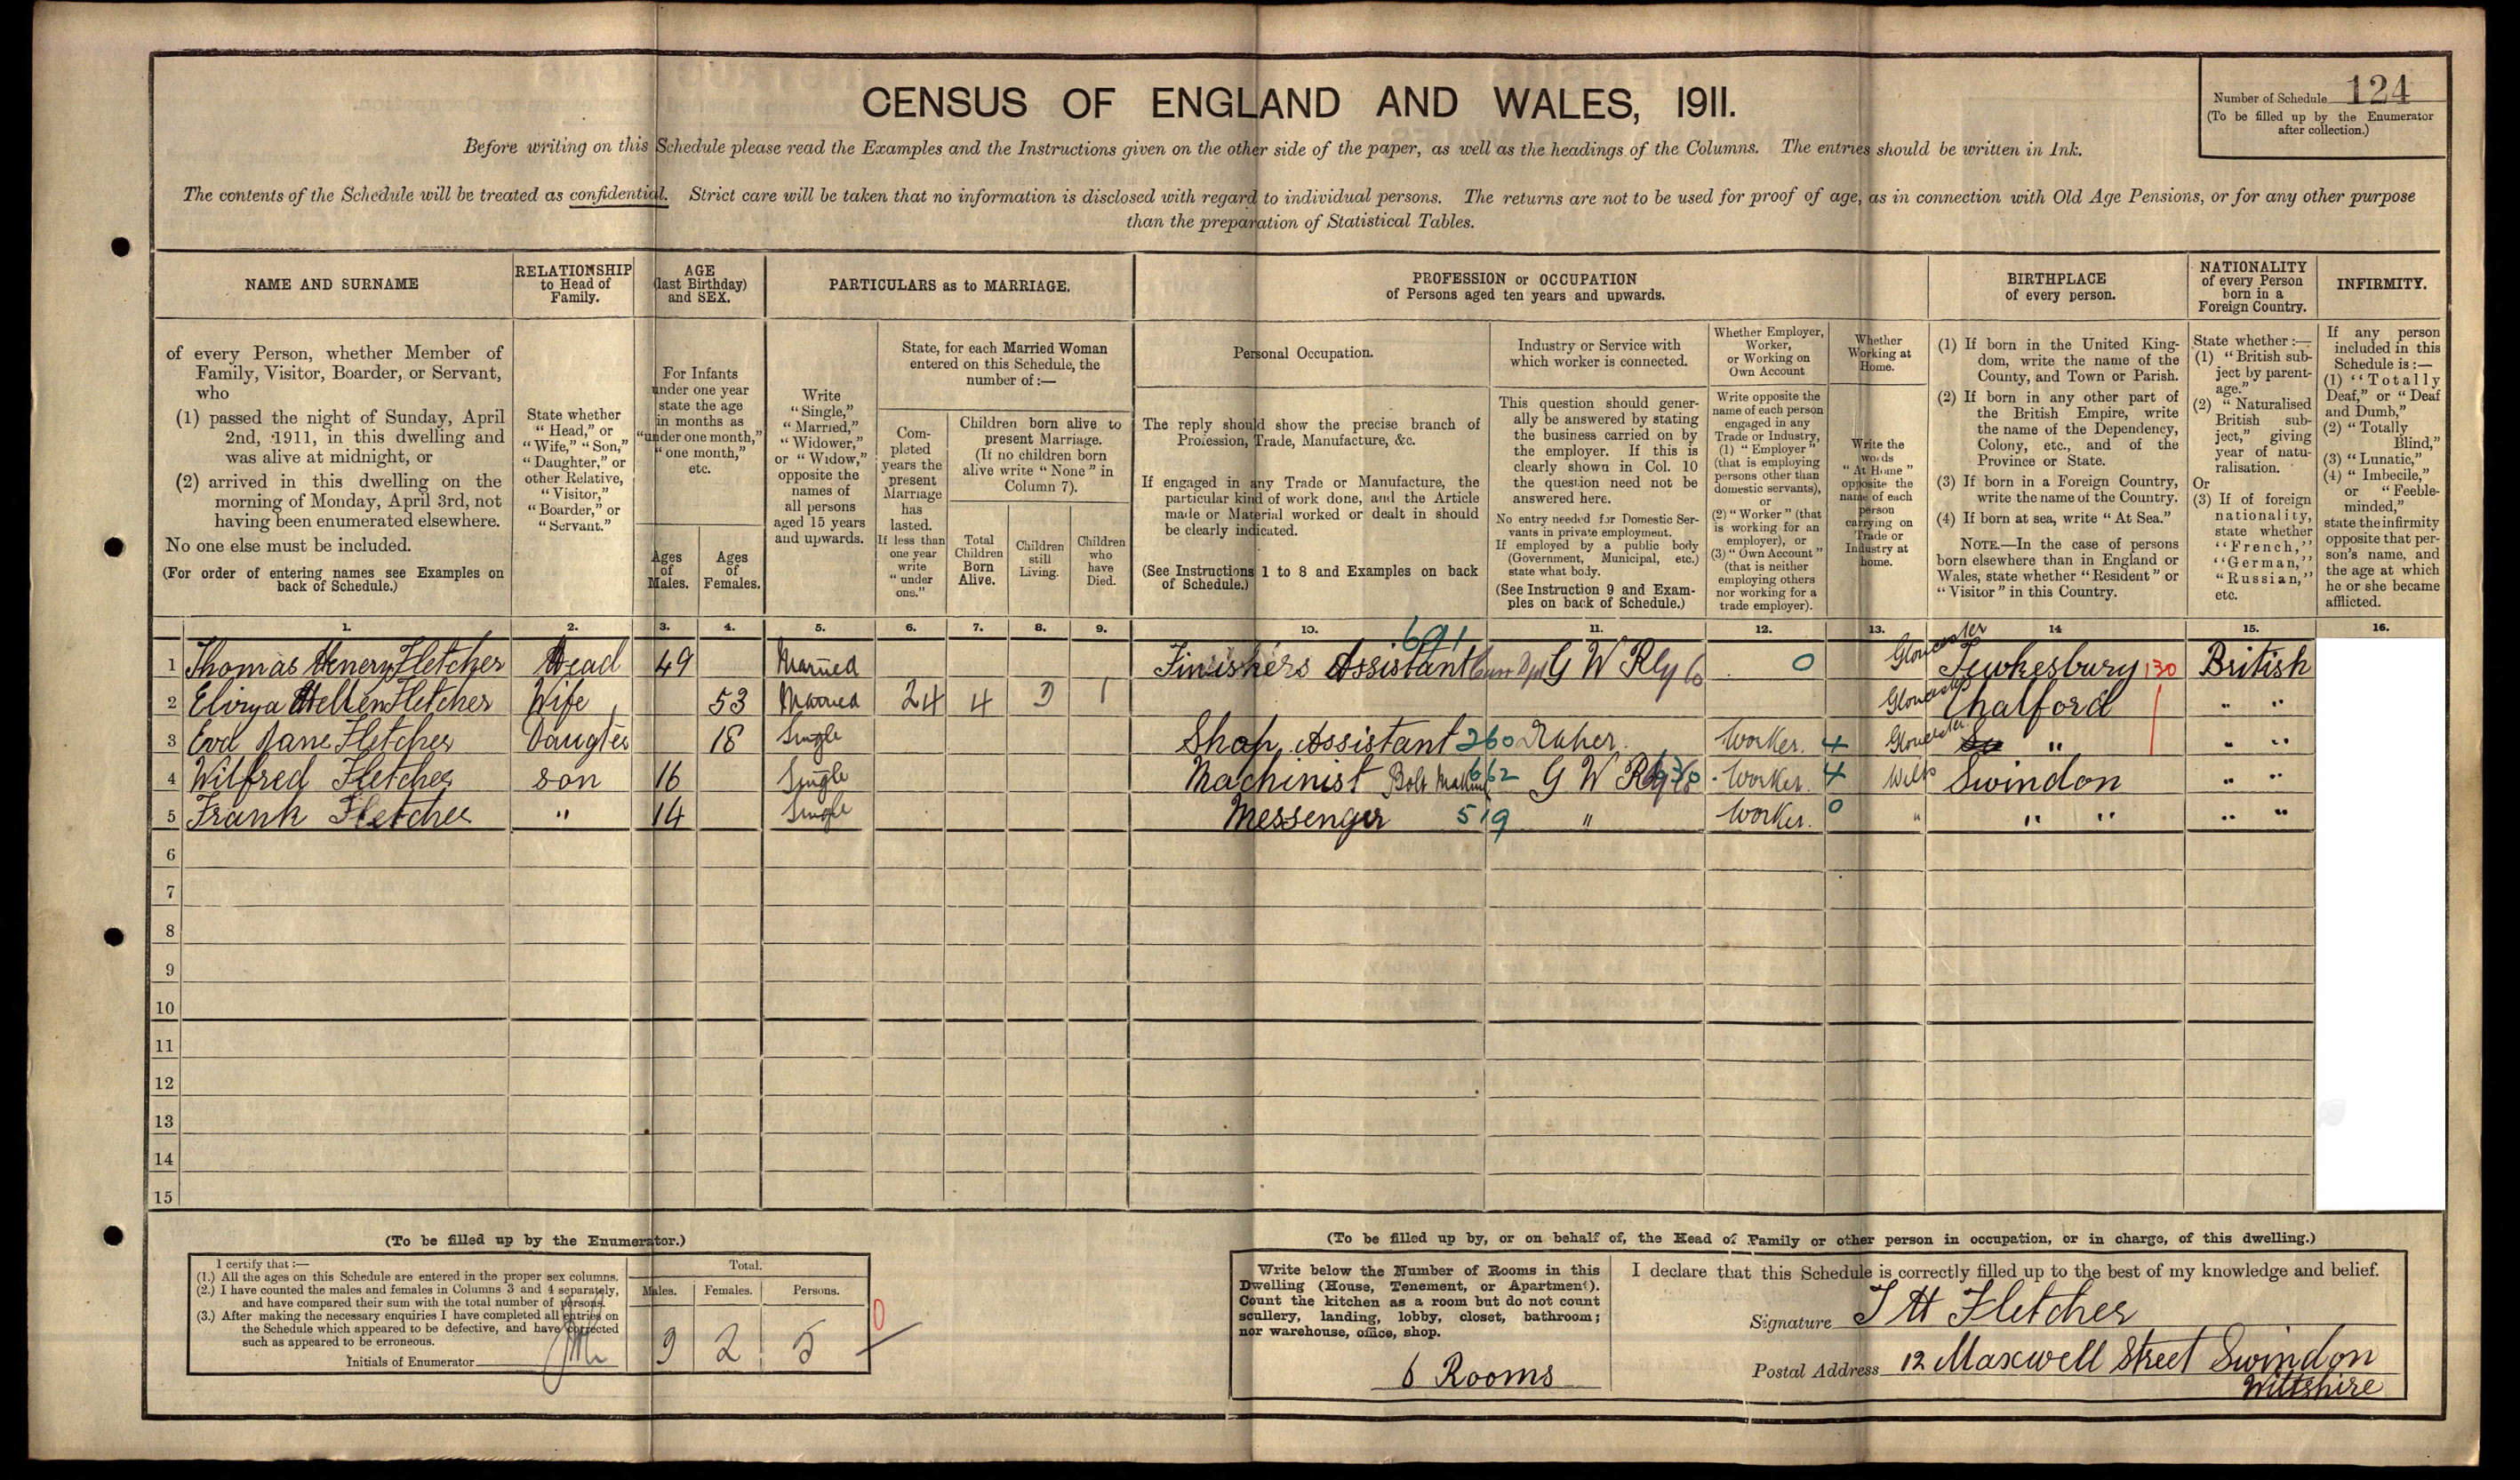 CENSUS OF ENGLAND AND WALES, 1911.
Number of Schedule 124
(To be filled up by the Enumerator
after collection.)
Before writing on this Schedule please read the Examples and the Instructions given on the other side of the paper, as well as the headings of the Columns. The entries should be written in Ink.
The contents of the Schedule will be treated as confidential. Strict care will be taken that no information is disclosed with regard to individual persons. The returns are not to be used for proof of age, as in connection with Old Age Pensions, or for any other purpose
than the preparation of Statistical Tables.
NAME AND SURNAME
of every Person, whether Member of
Family, Visitor, Boarder, or Servant,
who
(1) passed the night of Sunday, April
2nd, 1911, in this dwelling and
was alive at midnight, or
(2) arrived in this dwelling on the
morning of Monday, April 3rd, not
having been enumerated elsewhere.
No one else must be included.
(For order of entering names see Examples on
back of Schedule.)
RELATIONSHIP
to Head of
Family.
State whether
"Head," or
"Wife," "Son,"
"Daughter," or
other Relative,
"Visitor,"
"Boarder," or
"Servant."
AGE
(last Birthday)
and SEX.
For Infants
under one year
state the age
in months as
"under one month,"
"one month,"
etc.
Ages
of
Males.
Ages
of
Females.
PARTICULARS as to MARRIAGE.
Write
"Single,"
"Married,"
"Widower,"
or "Widow,"
opposite the
names of
all persons
aged 15 years
and upwards.
State, for each Married Woman
entered on this Schedule, the
number of:—
Com-
pleted
years the
present
Marriage
has
lasted.
If less than
one year
write
"under
one."
Children born alive to
present Marriage.
(If no children born
alive write "None" in
Column 7).
Total
Children
Born
Alive.
Children
still
Living.
Children
who
have
Died.
PROFESSION or OCCUPATION
of Persons aged ten years and upwards.
Personal Occupation.
The reply should show the precise branch of
Profession, Trade, Manufacture, &c.
If engaged in any Trade or Manufacture, the
particular kind of work done, and the Article
made or Material worked or dealt in should
be clearly indicated.
(See Instructions 1 to 8 and Examples on back
of Schedule.)
Industry or Service with
which worker is connected.
This question should gener-
ally be answered by stating
the business carried on by
the employer. If this is
clearly shown in Col. 10
the question need not be
answered here.
No entry needed for Domestic Ser-
vants in private employment.
If employed by a public body
(Government, Municipal, etc.)
state what body.
(See Instruction 9 and Exam-
ples on back of Schedule.)
Whether Employer,
Worker,
or Working on
Own Account
Write opposite the
name of each person
engaged in any
Trade or Industry,
(1) "Employer"
(that is employing
persons other than
domestic servants),
or
(2) "Worker" (that
is working for an
employer), or
(3) "Own Account"
(that is neither
employing others
nor working for a
trade employer).
Whether
Working at
Home.
Write the
words
"At Home"
opposite the
name of each
person
carrying on
Trade or
Industry at
home.
BIRTHPLACE
of every person.
(1) If born in the United King-
dom, write the name of the
County, and Town or Parish.
(2) If born in any other part of
the British Empire, write
the name of the Dependency,
Colony, etc., and of the
Province or State.
(3) If born in a Foreign Country,
write the name of the Country.
(4) If born at sea, write "At Sea."
NOTE.—In the case of persons
born elsewhere than in England or
Wales, state whether "Resident" or
"Visitor" in this Country.
NATIONALITY
of every Person
born in a
Foreign Country.
State whether:—
(1) "British sub-
ject by parent-
age."
(2) "Naturalised
British sub-
ject," giving
year of natu-
ralisation.
Or
(3) If of foreign
nationality,
state whether
"French,"
"German,"
"Russian,"
etc.
INFIRMITY.
If any person
included in this
Schedule is:—
(1) "Totally
Deaf," or "Deaf
and Dumb,"
(2) "Totally
Blind,"
(3) "Lunatic,"
(4) "Imbecile,"
or "Feeble-
minded,"
state the infirmity
opposite that per-
son's name, and
the age at which
he or she became
afflicted.
1. 2. 3. 4. 5. 6. 7. 8. 9. 10. 11. 12. 13. 14 15. 16.
1 Thomas Henery Fletcher Head 49 Married Finishers Assistant 691 G W Rly Co 0 Gloucester Tewkesbury 130 British
2 Elizya Hellen Fletcher Wife 53 Married 24 4 3 1 Gloucester Chalford " "
3 Eva Jane Fletcher Daugter 18 Single Shop Assistant 260 Draper. Worker. 4 Gloucester " " "
4 Wilfred Fletcher son 16 Single Machinist Bolt Making 662 G W Rly Co Worker. 4 Wilts Swindon " "
5 Frank Fletcher " 14 Single Messenger 519 " Worker. 0 " " " " "
6
7
8
9
10
11
12
13
14
15
(To be filled up by the Enumerator.)
I certify that:—
(1.) All the ages on this Schedule are entered in the proper sex columns.
(2.) I have counted the males and females in Columns 3 and 4 separately,
and have compared their sum with the total number of persons.
(3.) After making the necessary enquiries I have completed all entries on
the Schedule which appeared to be defective, and have corrected
such as appeared to be erroneous.
Initials of Enumerator
Total.
Males. Females. Persons.
3 2 5
0
(To be filled up by, or on behalf of, the Head of Family or other person in occupation, or in charge, of this dwelling.)
Write below the Number of Rooms in this
Dwelling (House, Tenement, or Apartment).
Count the kitchen as a room but do not count
scullery, landing, lobby, closet, bathroom;
nor warehouse, office, shop.
6 Rooms
I declare that this Schedule is correctly filled up to the best of my knowledge and belief.
Signature T H Fletcher
Postal Address 12 Maxwell Street Swindon
Wiltshire